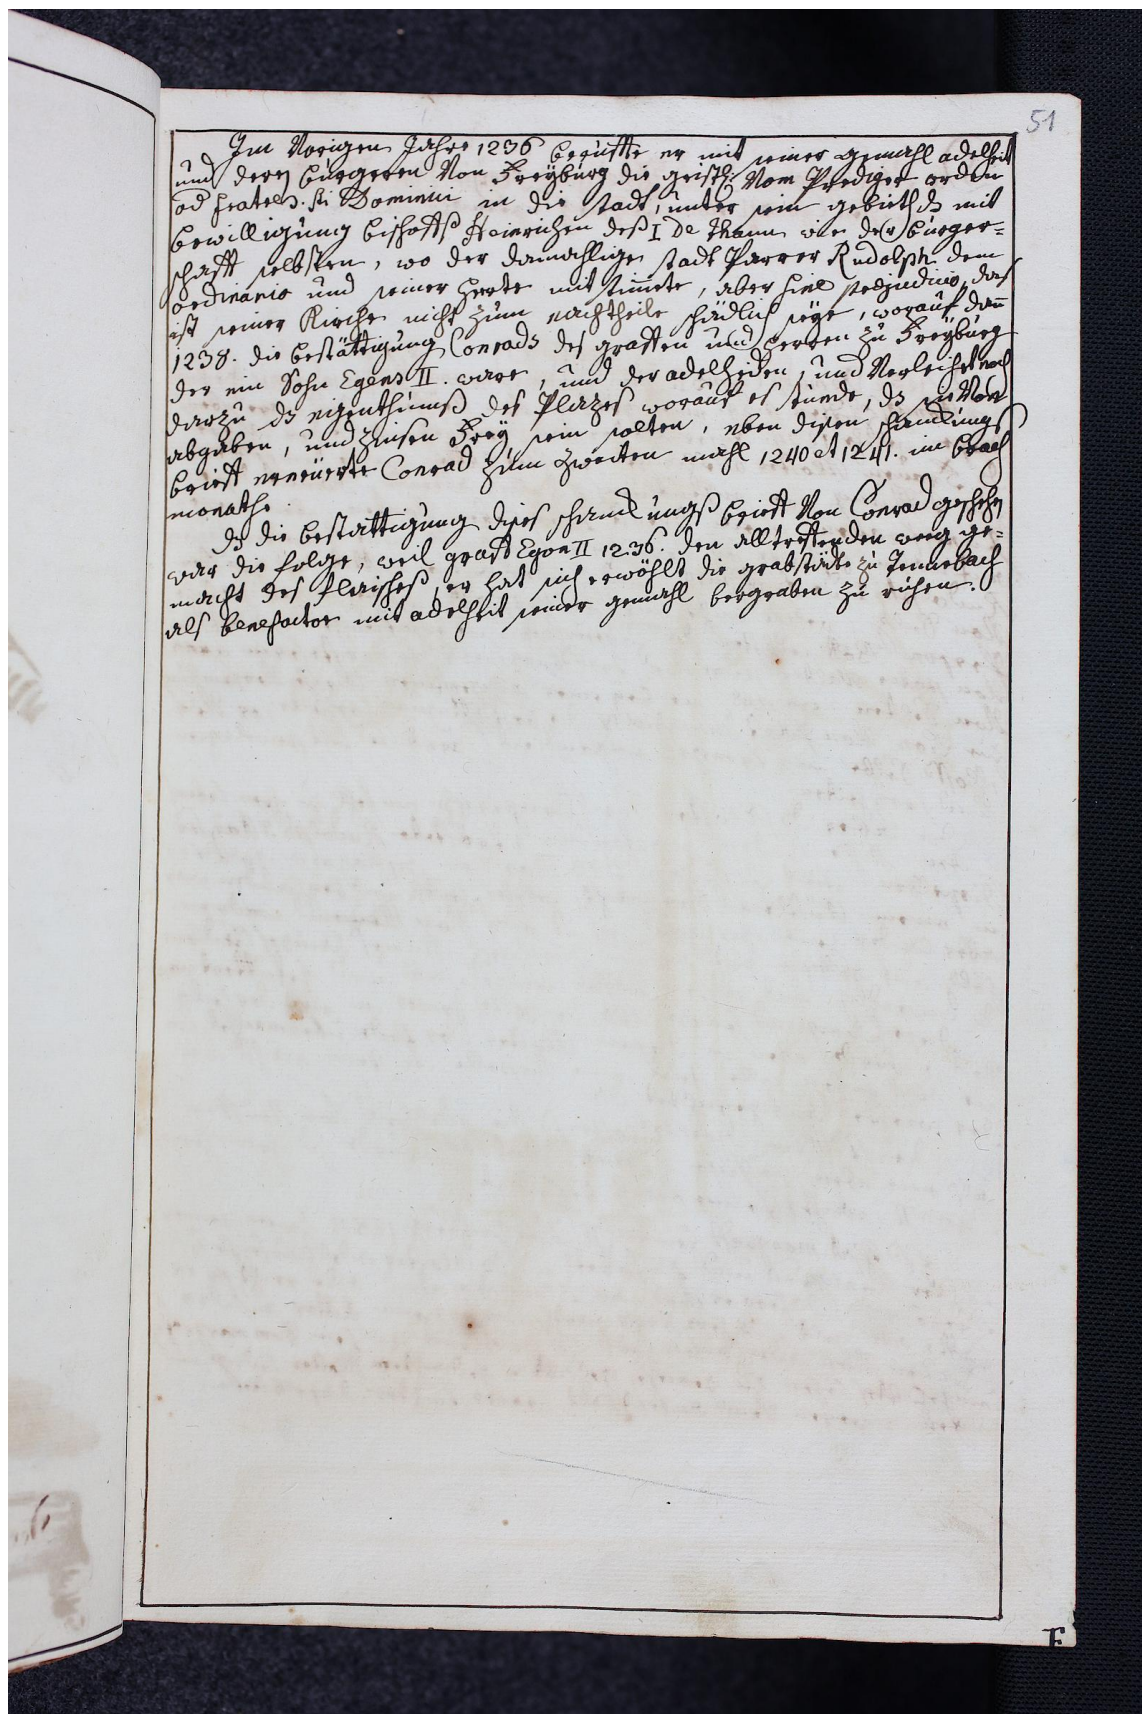 51
Im Vorigen Jahre 1236 beruffte er mit seiner gemahl adelheit
und deren bürgeren Von Freÿburg die geistl: Vom Prediger orden
od fratres. sti Dominici in die stadt, unter sein gebieth ds mit
bewilligung bischoffs Heinrichen deß I De Thann wie der bürger=
schafft selbsten, wo der damahlige stadt Parrer Rudolph dem
ordinario und seiner herte mit stimete, aber sine prejudicio, das
ist seiner Kirche nicht zum nachtheile schädlich seÿe, worauf dan
1238. die bestättigung Conrads des graffen und herren zu Freÿburg
der ein Sohn Egens II. ware, und der adelheiden, und Verleihet noch
darzu ds eigenthums des Plazes worauf es stunde, ds sie Von
abgaben, und zinsen Freÿ sein solten, eben disen schankungs
brieff erneüerte Conrad zum zweiten mahl 1240 et 1241. im brach
monathe.
Ds die bestattigung dises schankungß brieff Von Conrad geschehen
war die folge, weil graff Egon II 1236. den alltreffenden weeg ge=
macht des fleisches, er hat sich erwöhlt die grabstätte zu Tennebach
als benefactor mit adelheit seiner gemahl bergraben zu ruhen.
F